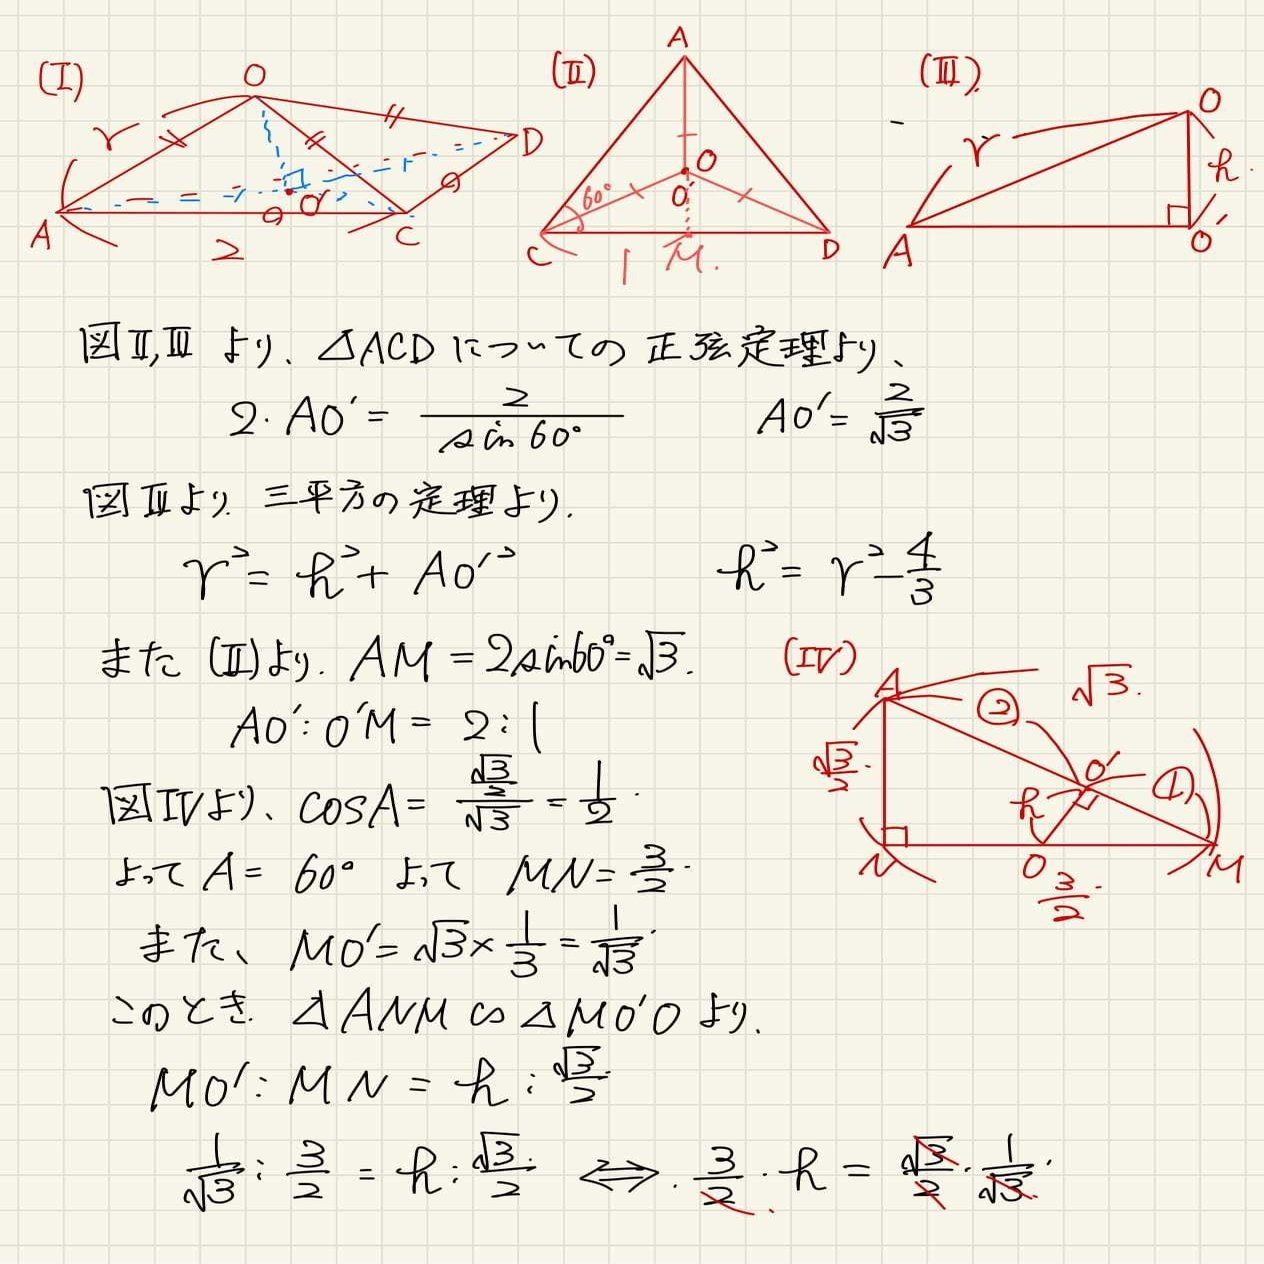 (I)
O
r
D
A
O'
C
2
(II)
A
O
O'
60°
C
1
M.
D
(III)
O
r
h
A
O'
図II,III より、△ACDについての正弦定理より、
2·AO' = 2/sin60° AO' = 2/√3
図IIIより 三平方の定理より.
r² = h² + AO'² h² = r² - 4/3
また (II)より. AM = 2sin60° = √3.
AO' : O'M = 2 : 1
(IV)
A
②
√3.
√3/2.
O'
①
h
N
O
M
3/2.
図IVより、cosA = (√3/2)/√3 = 1/2.
よって A = 60° よって MN = 3/2.
また、MO' = √3 × 1/3 = 1/√3.
このとき. △ANM ∽ △MO'O より.
MO' : MN = h : √3/2.
1/√3 : 3/2 = h : √3/2. ⟺ . 3/2 · h = √3/2 · 1/√3.